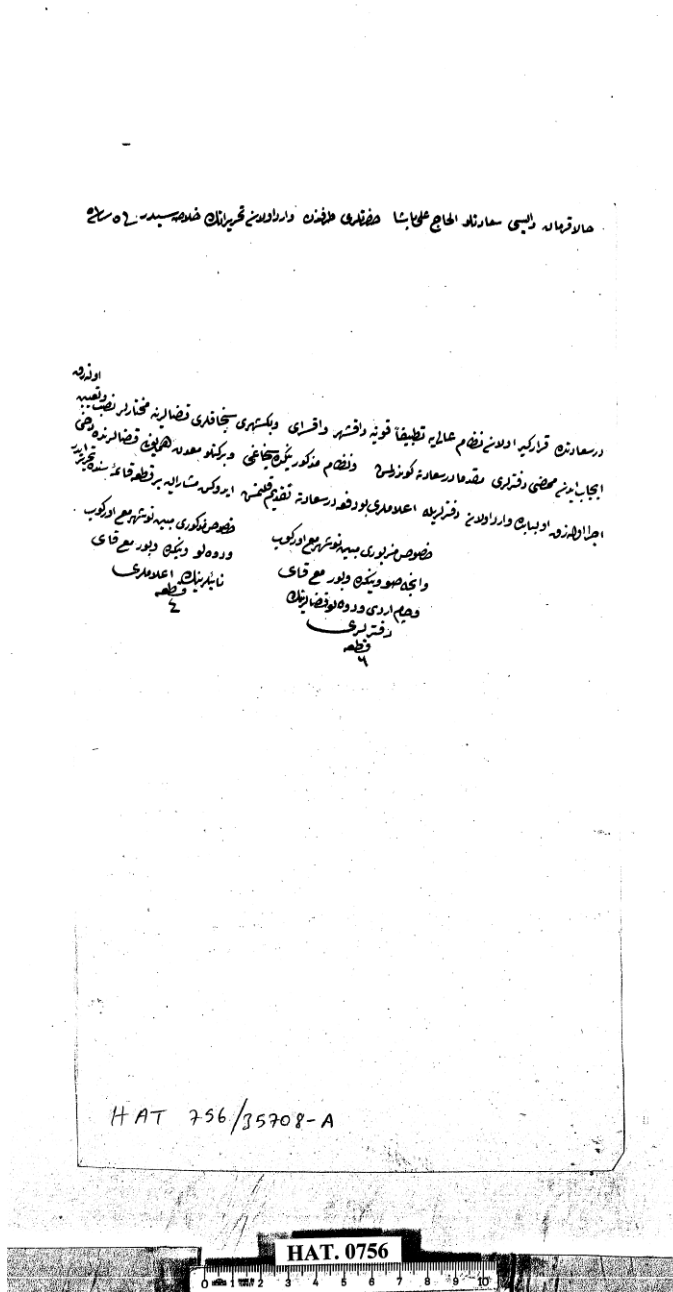 حالا قرمان والیسی سعادتلو الحاج علی پاشا حضرتلری طرفندن وارد اولان تحریراتك خلاصه سیدر
اوله رق
درسعادتده قرارکیر اولان نظام عالی یه تطبیقاً قونیه واقشهر واقسرای وبکشهری سنجاقلری قضالرینه مختارلر نصب وتعیین
ایجاب ایدن دفترلری مقدما درسعادته کوندرلمش ونظام مذکور نیکده سنجاغی وبرکتلو معدن همایون قضالرنده دخی
اجرا اوله رق اولبابده وارد اولان دفترلریله اعلاملری بو دفعه درسعادته تقدیم قلنمش ایدوکی مشارالیه بر قطعه قائمه سنده تحریر ایدر
خصوص مزبوری مبین نوشهر مع اورکوب
وانجه صو ونیکده وبور مع
ودوه لو قضالرینك
دفترلری
قطعه
٦
خصوص مذکوری مبین نوشهر مع اورکوب
ودوه لو ونیکده وبور مع
نائبلرینك اعلاملری
قطعه
٤
HAT 756/35708-A
HAT. 0756
0 1 2 3 4 5 6 7 8 9 10